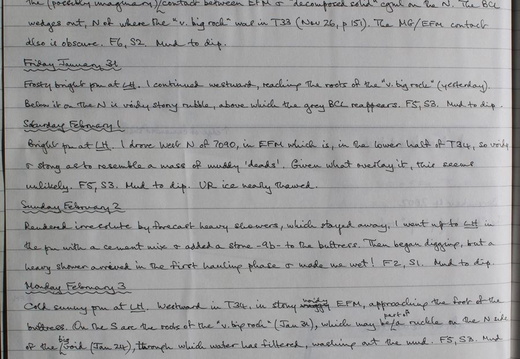 the (possibly imaginary) contact between EFM & "decomposed solid" cgml on the N. The BCL
wedges out, N of where the "v. big rock" was in T33 (Nov 26, p 151). The MG/EFM contact
also is obscure. F6, S2. Mud to dip.
Friday January 31
Frosty bright pm at LH. I continued westward, reaching the roots of the "v. big rock" (yesterday).
Below it on the N is voidy stony rubble, above which the grey BCL reappears. F5, S3. Mud to dip.
Saturday February 1
Bright pm at LH. I drove West N of 7090, in EFM which is, in the lower half of T34, so voidy
& stony as to resemble a mass of muddy 'deads'. Given what overlay it, this seems
unlikely. F5, S3. Mud to dip. UR ice nearly thawed.
Sunday February 2
Rendered irresolute by forecast heavy showers, which stayed away, I went up to LH in
the pm with a cement mix & added a stone -9b- to the buttress. Then began digging, but a
heavy shower arrived in the first hauling phase & made me wet! F2, S1. Mud to dip.
Monday February 3
Cold sunny pm at LH. Westward in T34, in stony voidy EFM, approaching the foot of the
buttress. On the S are the roots of the "v. big rock" (Jan 31), which may be part of a ruckle on the N side
of the big void (Jan 24), through which water has filtered, washing out the mud. F5, S3. Mud